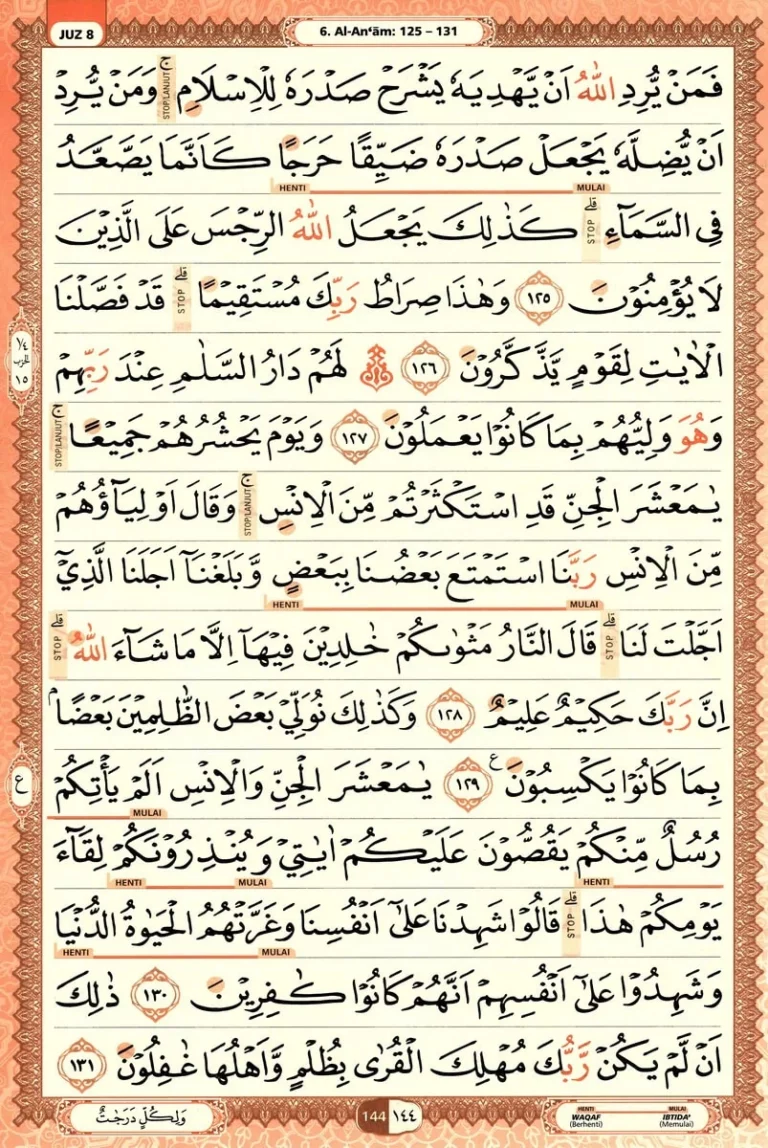 JUZ 8
6. Al-An‘ām: 125 – 131
فَمَنْ يُّرِدِ اللّٰهُ اَنْ يَّهْدِيَهٗ يَشْرَحْ صَدْرَهٗ لِلْاِسْلَامِۚ وَمَنْ يُّرِدْ
STOP/LANJUT
اَنْ يُّضِلَّهٗ يَجْعَلْ صَدْرَهٗ ضَيِّقًا حَرَجًا كَاَنَّمَا يَصَّعَّدُ
HENTI MULAI
فِى السَّمَاۤءِۗ كَذٰلِكَ يَجْعَلُ اللّٰهُ الرِّجْسَ عَلَى الَّذِيْنَ
STOP
لَا يُؤْمِنُوْنَ ١٢٥ وَهٰذَا صِرَاطُ رَبِّكَ مُسْتَقِيْمًاۗ قَدْ فَصَّلْنَا
STOP
الْاٰيٰتِ لِقَوْمٍ يَّذَّكَّرُوْنَ ١٢٦ ۞ لَهُمْ دَارُ السَّلٰمِ عِنْدَ رَبِّهِمْ
¼ الحزب ١٥
وَهُوَ وَلِيُّهُمْ بِمَا كَانُوْا يَعْمَلُوْنَ ١٢٧ وَيَوْمَ يَحْشُرُهُمْ جَمِيْعًاۚ
STOP/LANJUT
يٰمَعْشَرَ الْجِنِّ قَدِ اسْتَكْثَرْتُمْ مِّنَ الْاِنْسِۚ وَقَالَ اَوْلِيَاۤؤُهُمْ
STOP/LANJUT
مِّنَ الْاِنْسِ رَبَّنَا اسْتَمْتَعَ بَعْضُنَا بِبَعْضٍ وَّبَلَغْنَآ اَجَلَنَا الَّذِيْٓ
HENTI MULAI
اَجَّلْتَ لَنَاۗ قَالَ النَّارُ مَثْوٰىكُمْ خٰلِدِيْنَ فِيْهَآ اِلَّا مَا شَاۤءَ اللّٰهُۗ
STOP STOP
اِنَّ رَبَّكَ حَكِيْمٌ عَلِيْمٌ ١٢٨ وَكَذٰلِكَ نُوَلِّيْ بَعْضَ الظّٰلِمِيْنَ بَعْضًاۢ
بِمَا كَانُوْا يَكْسِبُوْنَ ࣖ ١٢٩ يٰمَعْشَرَ الْجِنِّ وَالْاِنْسِ اَلَمْ يَأْتِكُمْ
ع
MULAI
رُسُلٌ مِّنْكُمْ يَقُصُّوْنَ عَلَيْكُمْ اٰيٰتِيْ وَيُنْذِرُوْنَكُمْ لِقَاۤءَ
HENTI MULAI HENTI
يَوْمِكُمْ هٰذَاۗ قَالُوْا شَهِدْنَا عَلٰٓى اَنْفُسِنَا وَغَرَّتْهُمُ الْحَيٰوةُ الدُّنْيَا
STOP
HENTI MULAI
وَشَهِدُوْا عَلٰٓى اَنْفُسِهِمْ اَنَّهُمْ كَانُوْا كٰفِرِيْنَ ١٣٠ ذٰلِكَ
اَنْ لَّمْ يَكُنْ رَّبُّكَ مُهْلِكَ الْقُرٰى بِظُلْمٍ وَّاَهْلُهَا غٰفِلُوْنَ ١٣١
وَلِكُلٍّ دَرَجٰتٌ
144 ١٤٤
HENTI MULAI
WAQAF IBTIDA'
(Berhenti) (Memulai)